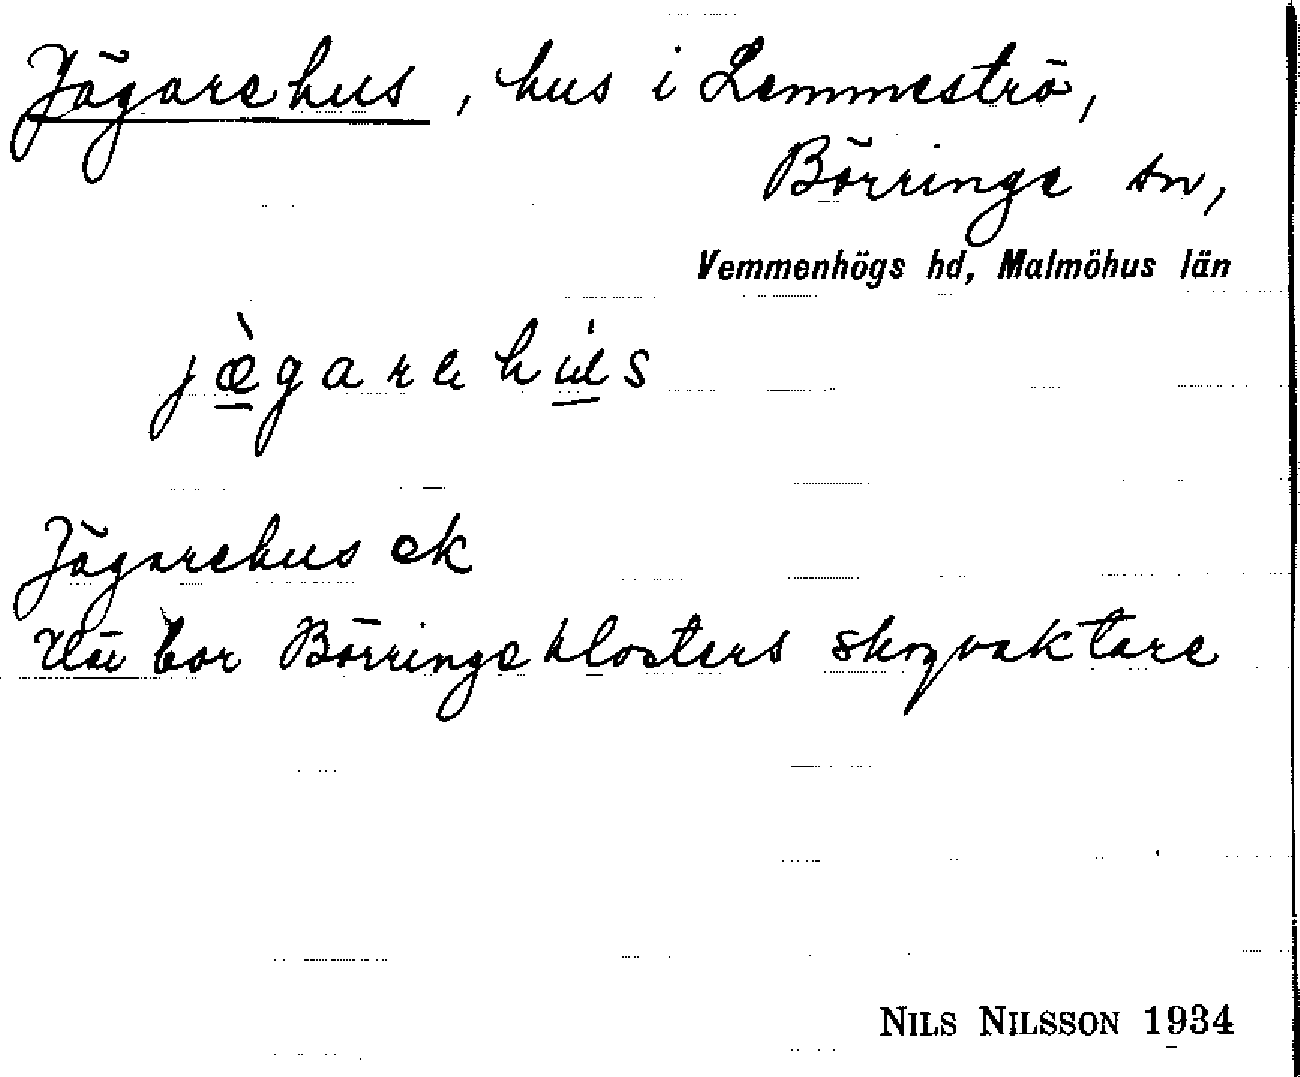 Jägarehus, hus i Lemmeströ,
Börringe sn,
Vemmenhögs hd, Malmöhus län
jæ̀garehús
Jägarehus ek
Där bor Börringeklosters skogvaktare
NILS NILSSON 1934